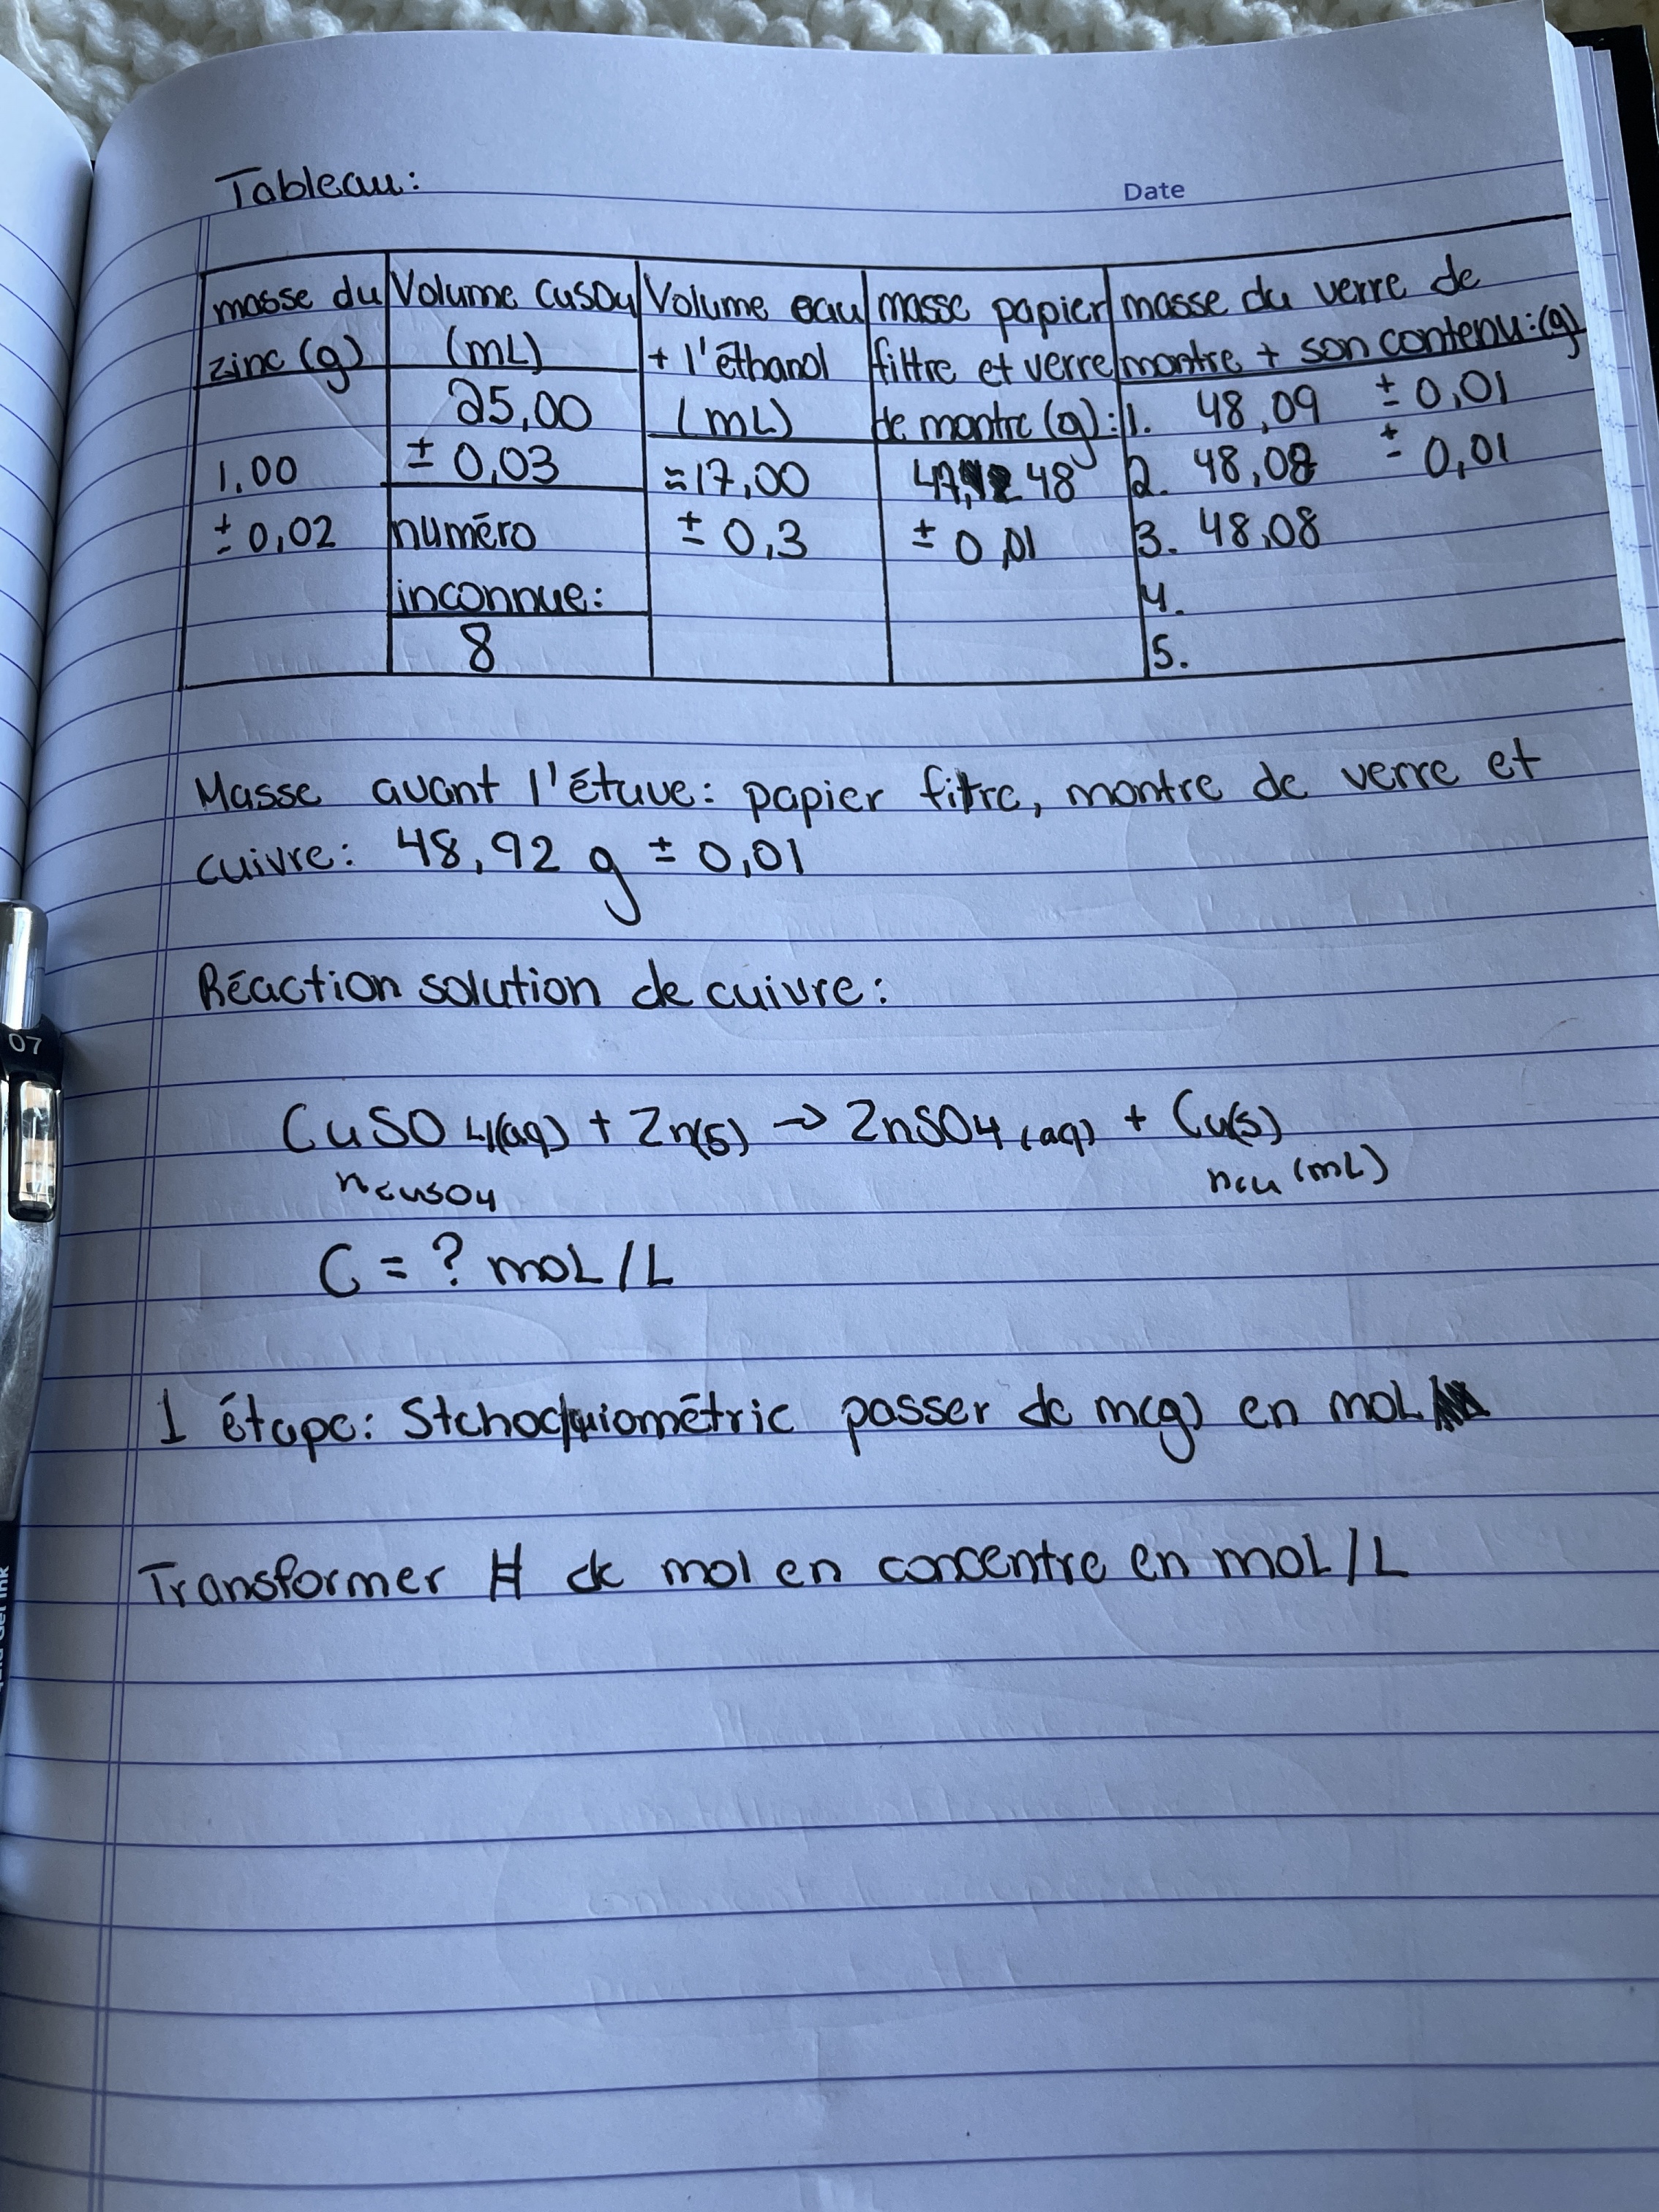 Tableau:
Date
masse du zinc (g)
1,00
± 0,02
Volume CuSO4 (mL)
25,00
± 0,03
numéro
inconnue:
8
Volume eau
+ l'éthanol
(mL)
≈17,00
± 0,3
masse papier
filtre et verre
de montre (g):
47, 48
± 0,01
masse du verre de
montre + son contenu:(g)
1. 48,09 ± 0,01
2. 48,08 ± 0,01
3. 48,08
4.
5.
Masse avant l'étuve: papier fitre, montre de verre et
cuivre: 48,92 g ± 0,01
Réaction solution de cuivre:
07
CuSO4(aq) + Zn(s) → ZnSO4(aq) + Cu(s)
ncuso4 ncu (mL)
C = ? moL/L
1 étape: Stchoquiométric passer de m(g) en moL
Transformer # de mol en concentre en moL/L